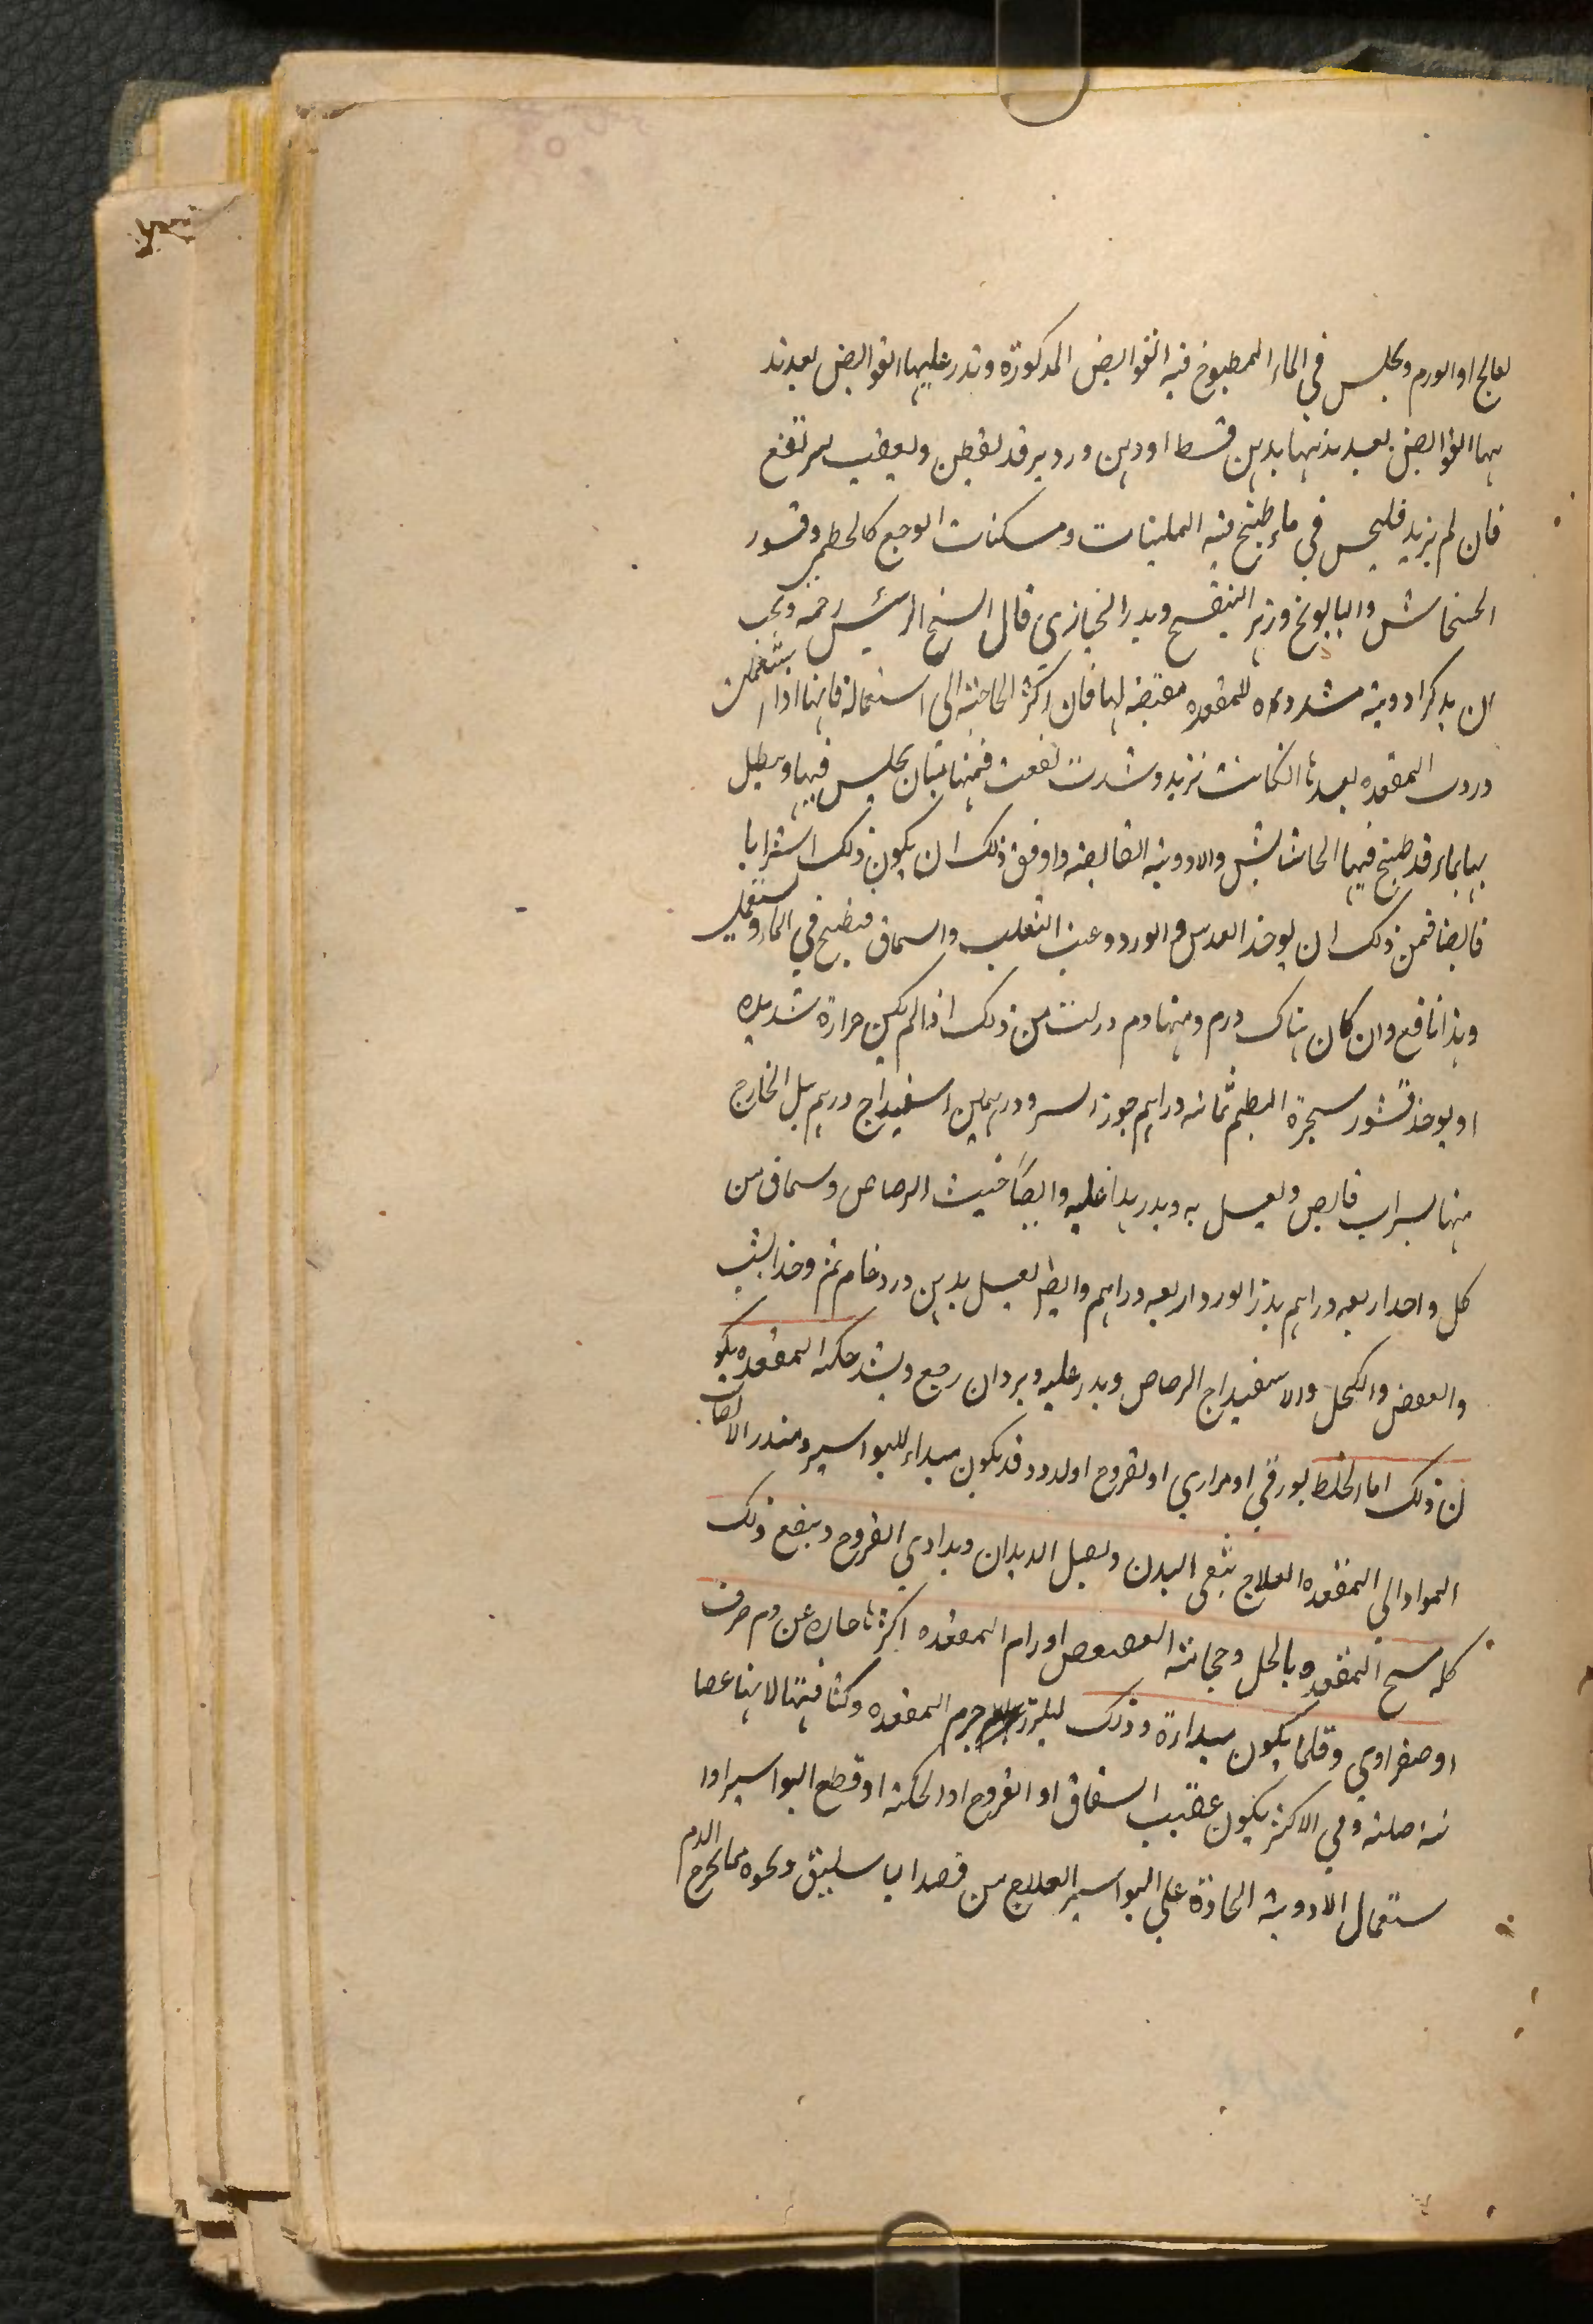 لعالج او الورم ويجلس في الماء المطبوخ فيه القوابض المذكورة وتذر عليها القوابض بعد تد
هها القوابض بعد تدهنها بدهن قسط او دهن ورد يرفد بقطن ويعصب ليرتفع
فان لم يزيد فليجلس في ماء طبخ فيه الملينات ومسكنات الوجع كالخطمي وقشور
الخشخاش والبابونج وزهر البنفسج وبذر الخبازي قال الشيخ الرئيس رحمه ويجب
ان يذكر ادوية مشددة للمقعدة مقبضه لها فان اكثر الحاجة الى استعماله فانها اذا استعملت
وردت المقعدة بعدها انكانت تزيد وشدت نفعت فمنها مياه يجلس فيها وينطل
بها بماء قد طبخ فيها الحشائش والادوية القابضة واوفق ذلك ان يكون ذلك اشرابا
قابضا فمن ذلك ان يوخذ العدس والورد وعنب الثعلب والسماق فيطبخ في الماء ويستعمل
وهذا نافع وان كان هناك ورم ومنها من ذلك اذا لم يكن حرارة شديده
او يوخذ قشور شجرة البطم ثمانه دراهم جوز السرو درهمين اسفيداج درهم يبل الخارج
منها بشراب قابض ويغسل به ويذر هذا عليه وايضاً خبث الرصاص وسماق من
كل واحد اربعه دراهم بذر الورد اربعه دراهم وايضا يغسل بدهن ورد خام ثم وخذ الشب
والعفص والكحل والاسفيداج الرصاص ويذر عليه ويرد ان رجع ويشد حكة المقعده يكو
ن ذلك اما لخلط بورقي او مراري او لقروح او لدود وقد يكون مبداء للبواسير ومنذر الانصباب
المواد الى المقعده العلاج ينقى البدن ويقتل الديدان ويداوي القروح وينفع ذلك
كله مسح المقعده بالخل وحجامة العصعص اورام المقعده اكثرها حاره عن دم صرف
او صفراوي وقلما يكون مبداءة وذلك لتلزز جرم المقعده وكثافتها لانها عصا
نة صلبة وفي الاكثر يكون عقيب الشقاق او القروح او الحكة او قطع البواسير او ا
ستعمال الادوية الحادة على البواسير العلاج من فصد الباسليق ونحوه مما يخرج الدم